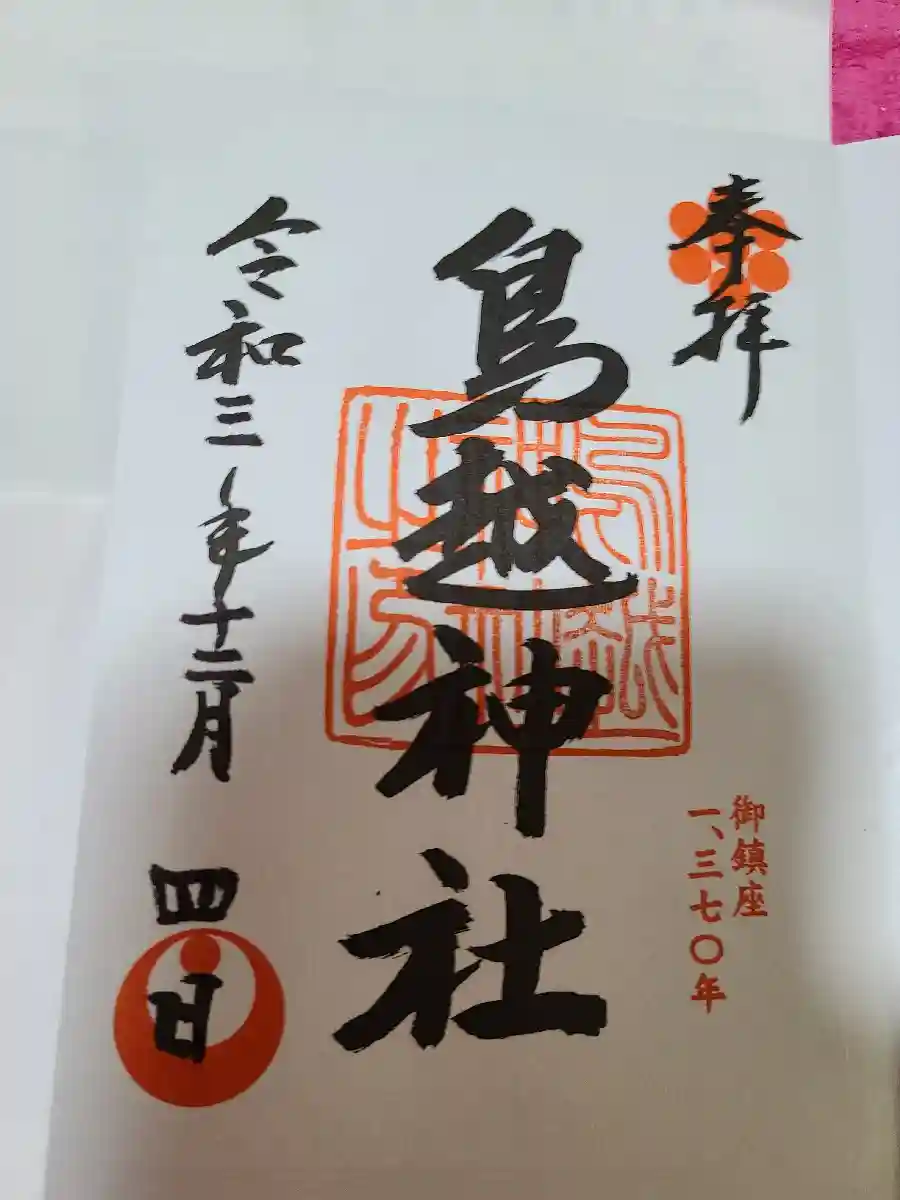 奉拝
御鎮座
一、三七〇年
鳥越神社
令和三年十二月四日